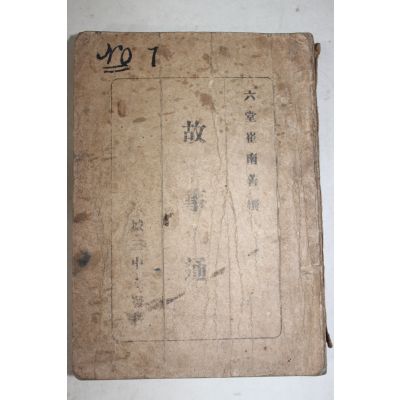 No 7
六堂崔南善撰
故事通